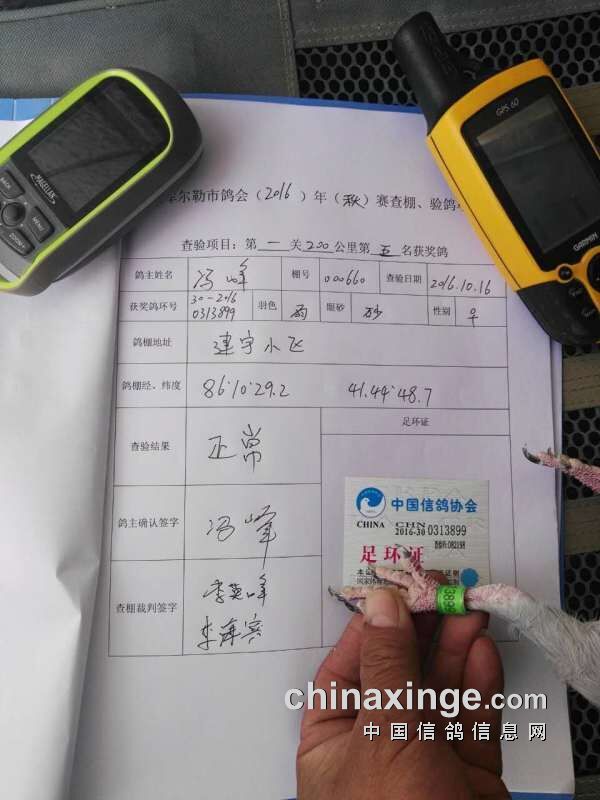 MAGELLAN
BACK
MENU
ZOOM
GPS 60
GARMIN
尔勒市鸽会(2016)年(秋)赛查棚、验鸽
查验项目:第一关200公里第五名获奖鸽
鸽主姓名 冯峰 棚号 000660 查验日期 2016.10.16
获奖鸽环号 30-2016 0313899 羽色 雨 眼砂 砂 性别
鸽棚地址 建宇小飞
鸽棚经、纬度 86:10:29.2 41.44:48.7
查验结果 正常
足环证
鸽主确认签字 冯峰
查棚裁判签字 李英峰
中国信鸽协会
CHINA CHN
2016-30 0313899
足环证
chinaxinge.com
中国信鸽信息网